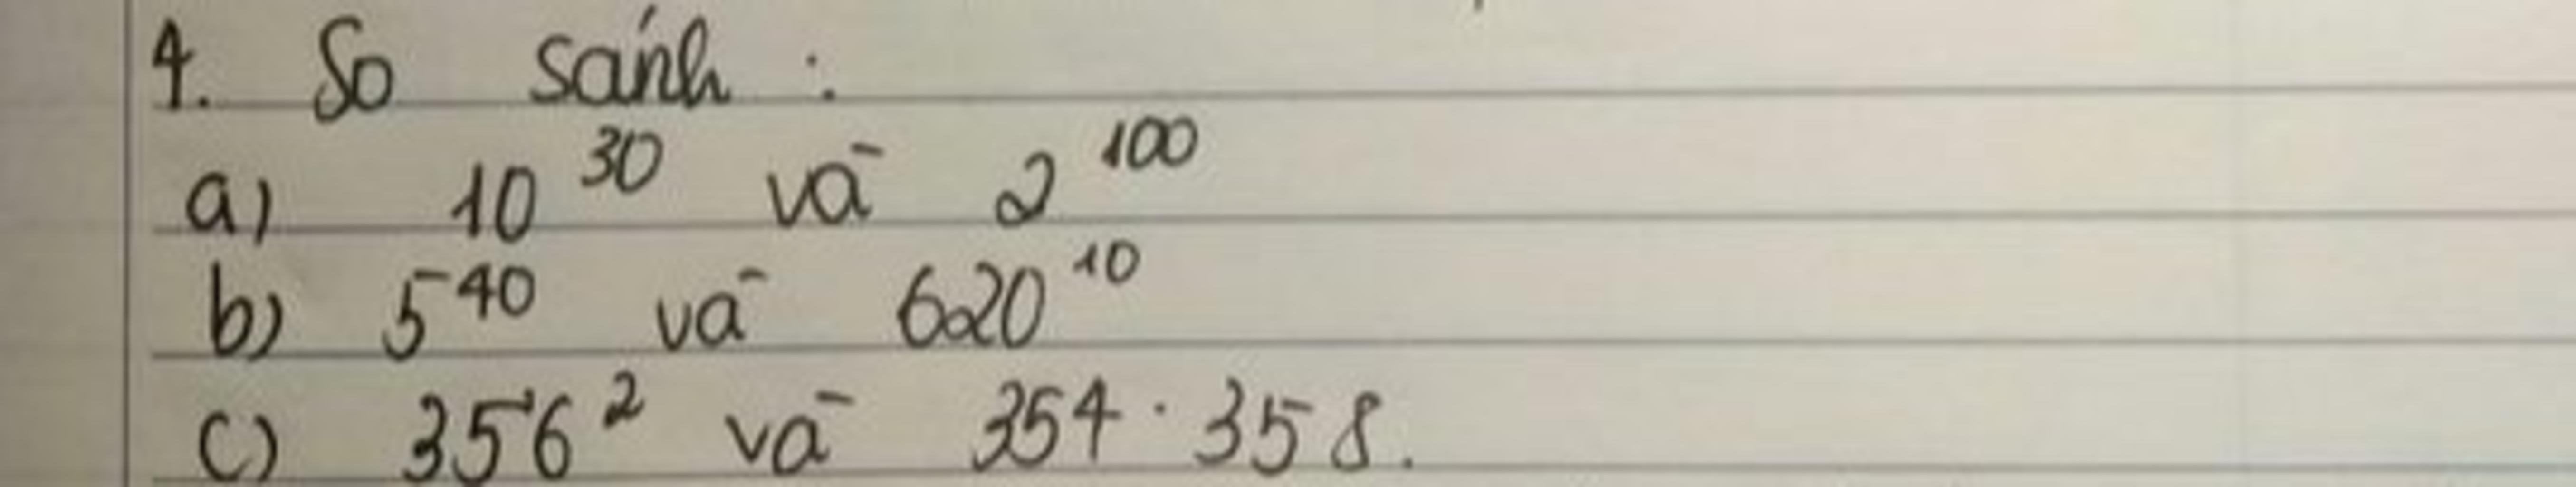 4. So sánh :
a) 10³⁰ và 2¹⁰⁰
b) 5⁴⁰ và 620¹⁰
c) 356² và 354 · 358.